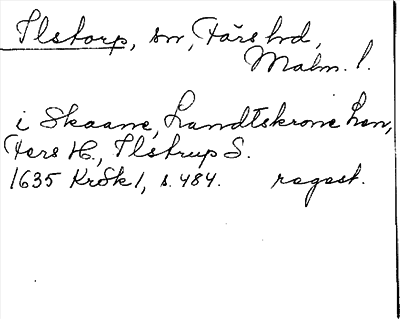 Ilstorp, sn, Färs hd,
Malm. l.
i Skaane, Landtskrone Len,
Fers H., Ilstrup S.
1635 KrSk 1, s. 484. ragast.